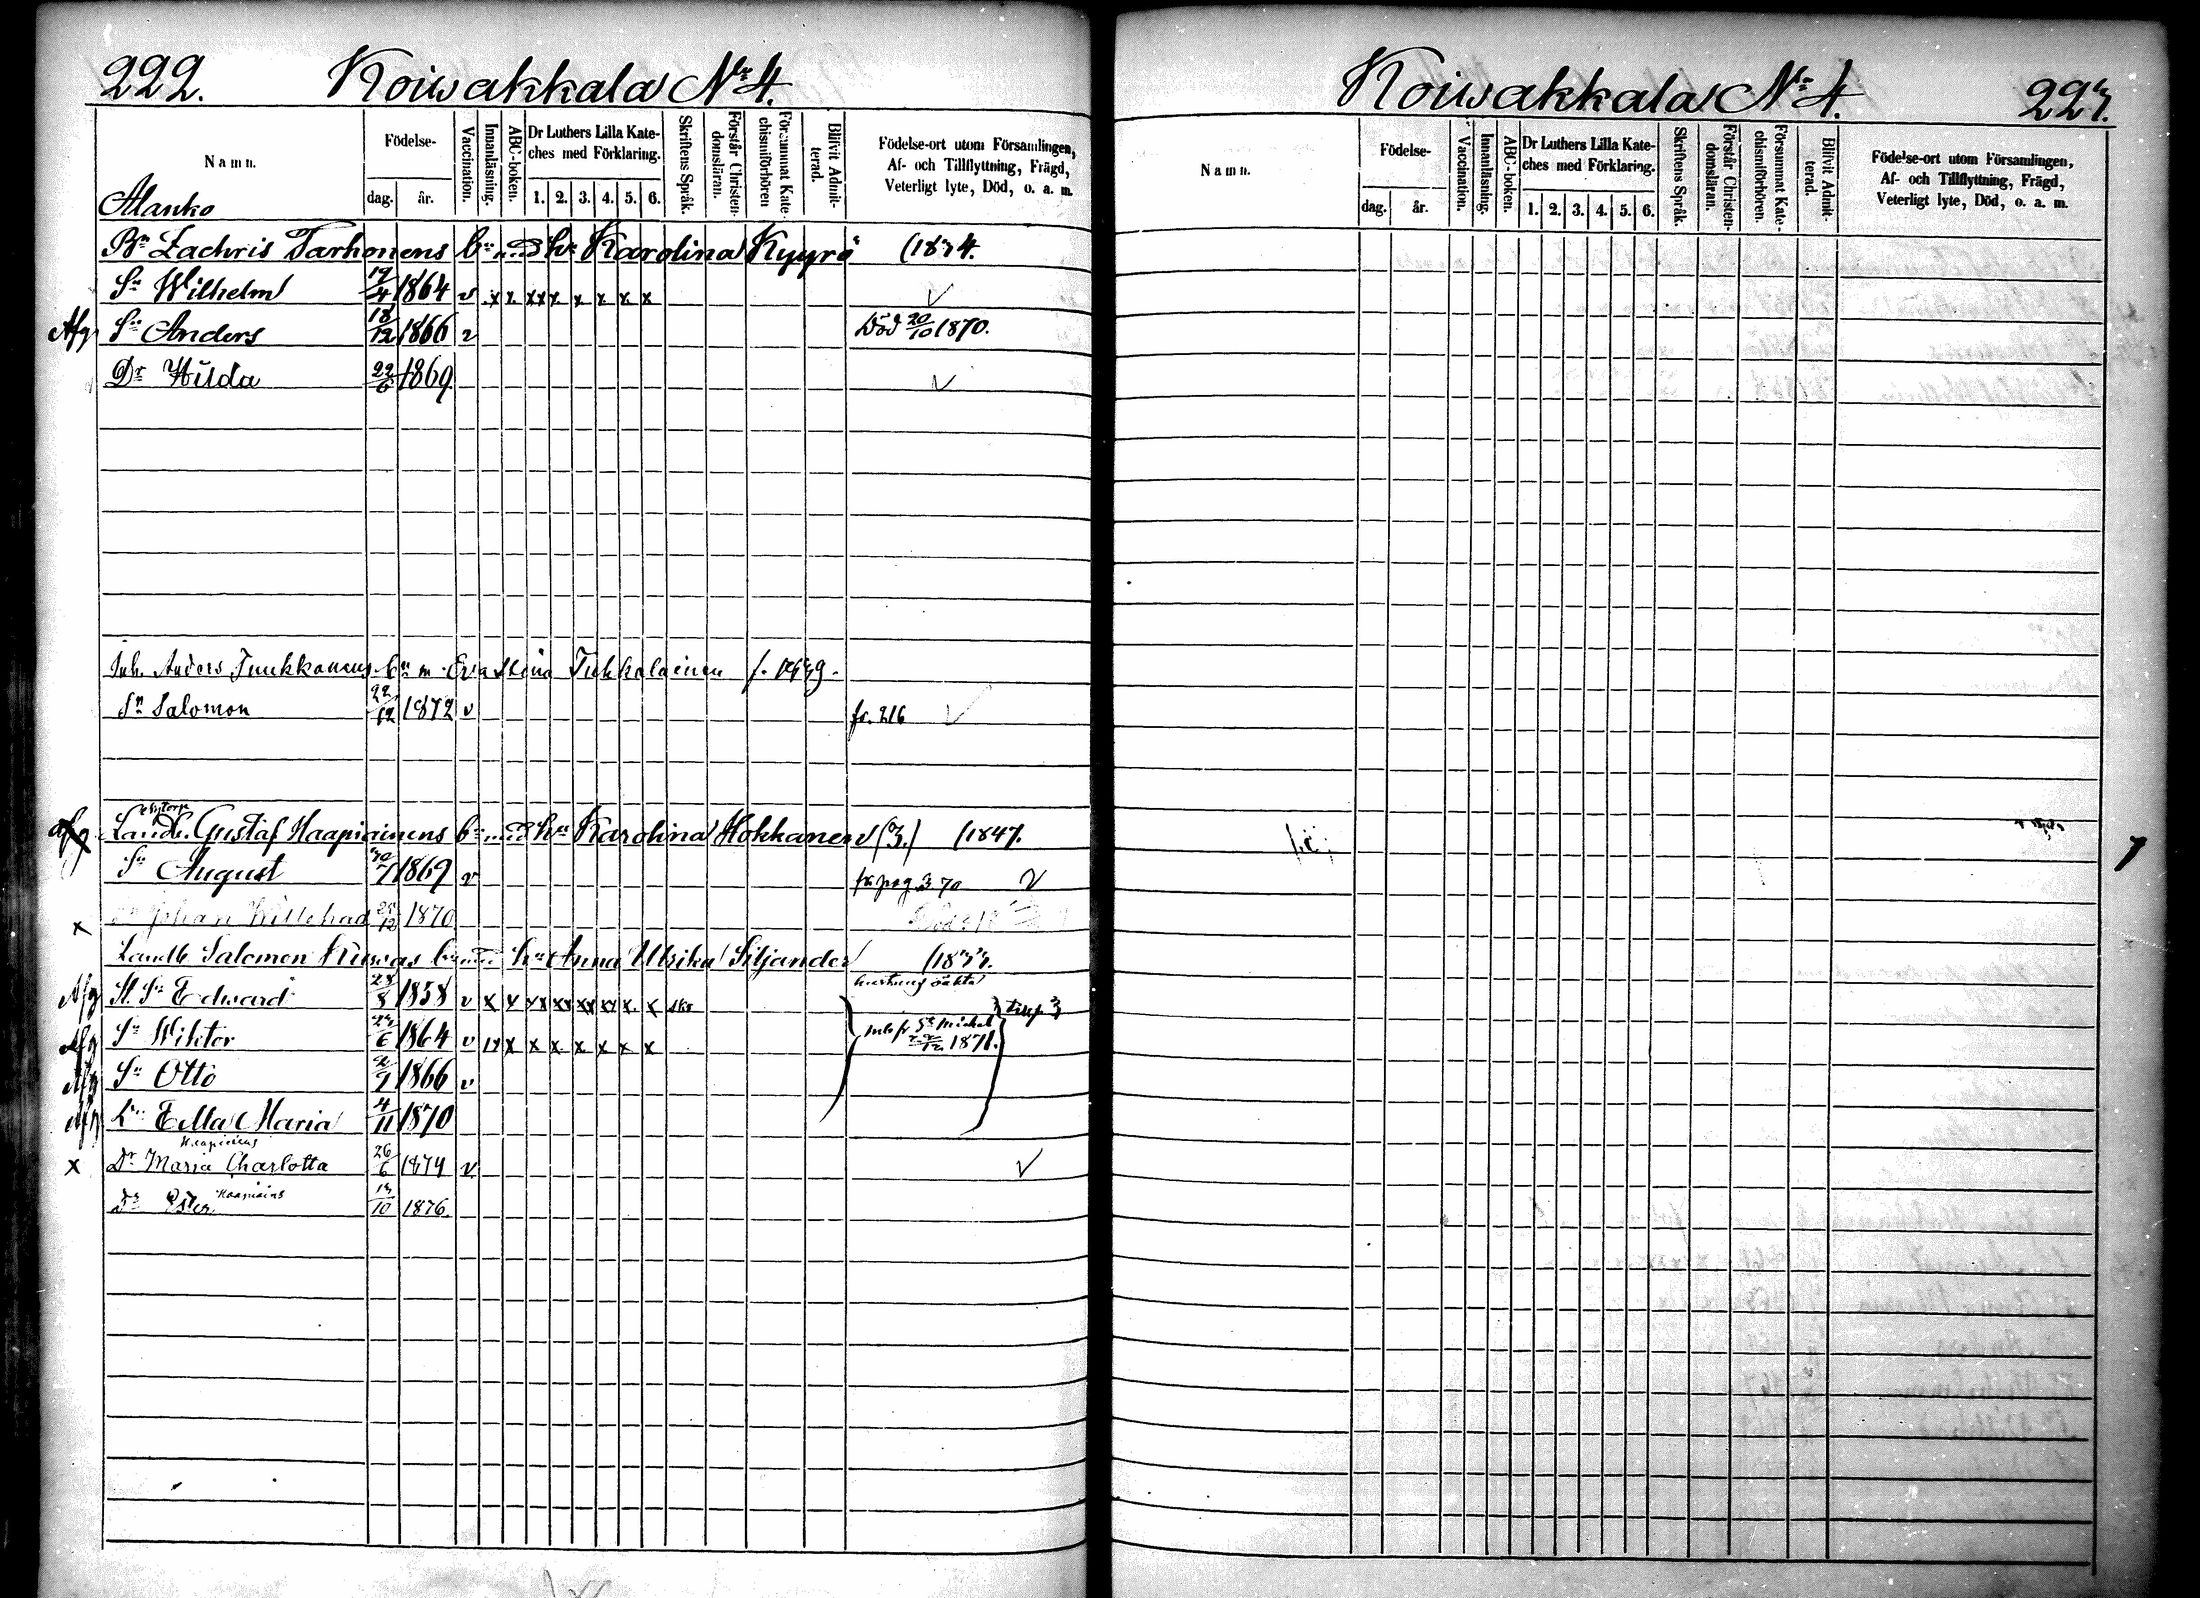 222. Koiwakkala Nr 4.
Namn.
Födelse-
dag. år.
Vaccination.
Innanläsning.
ABC-boken.
Dr Luthers Lilla Kate-
ches med Förklaring.
1. 2. 3. 4. 5. 6.
Skriftens Språk.
Förstår Christen-
domsläran.
Försummat Kate-
chismiförhören
Blifvit Admit-
terad.
Födelse-ort utom Församlingen,
Af- och Tillflyttning, Frägd,
Veterligt lyte, Död, o. a. m.
Alanko
Bn Zachris Tarhonens bn med hu Karolina Kyyrö (1834.
Sn Wilhelm 17/4 1864 v x x xx x x x x x
Afg Sn Anders 18/12 1866 v Död 20/10 1870.
Dr Hilda 22/6 1869
Inh. Anders Tuukkanens bn m. Eva Stina Tukkalainen f. 1839.
Sn Salomon 22/12 1872 v fr. 216
Afg Landb. Gustaf Haapiainens bn med hu Karolina Hokkanen (3.) (1847.
Sn August 30/7 1869 v fr pag 370
x Johan Willehad 25/12 1870
Landb Salomon Kuwas bn med hu Anna Ulrika Siljander (1833.
hustrus oäkta
Afg St. Sn Edward 28/8 1858 v x x xx xx xx xx x x
Afg Sn Wiktor 23/6 1864 v x x x x x x x inb fr St Michel 1871.
Afg Sn Otto 2/9 1866 v
Afg Dr Edla Maria 4/11 1870
Haapiainens
x Dr Maria Charlotta 26/6 1874 v
Haapiains
Dr Ester 13/10 1876.
Koiwakkala Nr 4. 223.
Namn.
Födelse-
dag. år.
Vaccination.
Innanläsning.
ABC-boken.
Dr Luthers Lilla Kate-
ches med Förklaring.
1. 2. 3. 4. 5. 6.
Skriftens Språk.
Förstår Christen-
domsläran.
Försummat Kate-
chismiförhören.
Blifvit Admit-
terad.
Födelse-ort utom Församlingen,
Af- och Tillflyttning, Frägd,
Veterligt lyte, Död, o. a. m.